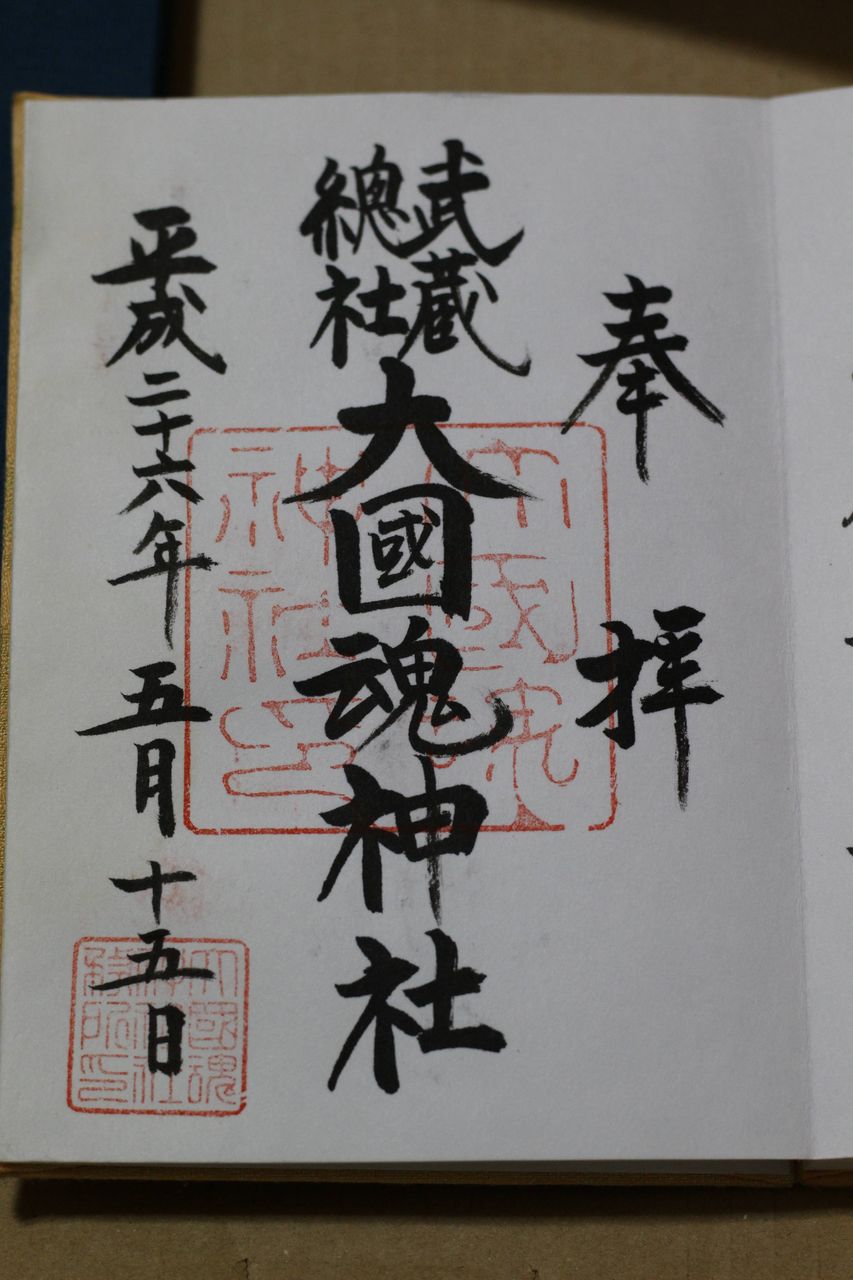 奉拝
武蔵
總社
大國魂神社
平成二十六年五月十五日
大國魂
神社印
大國魂
神社
務所印